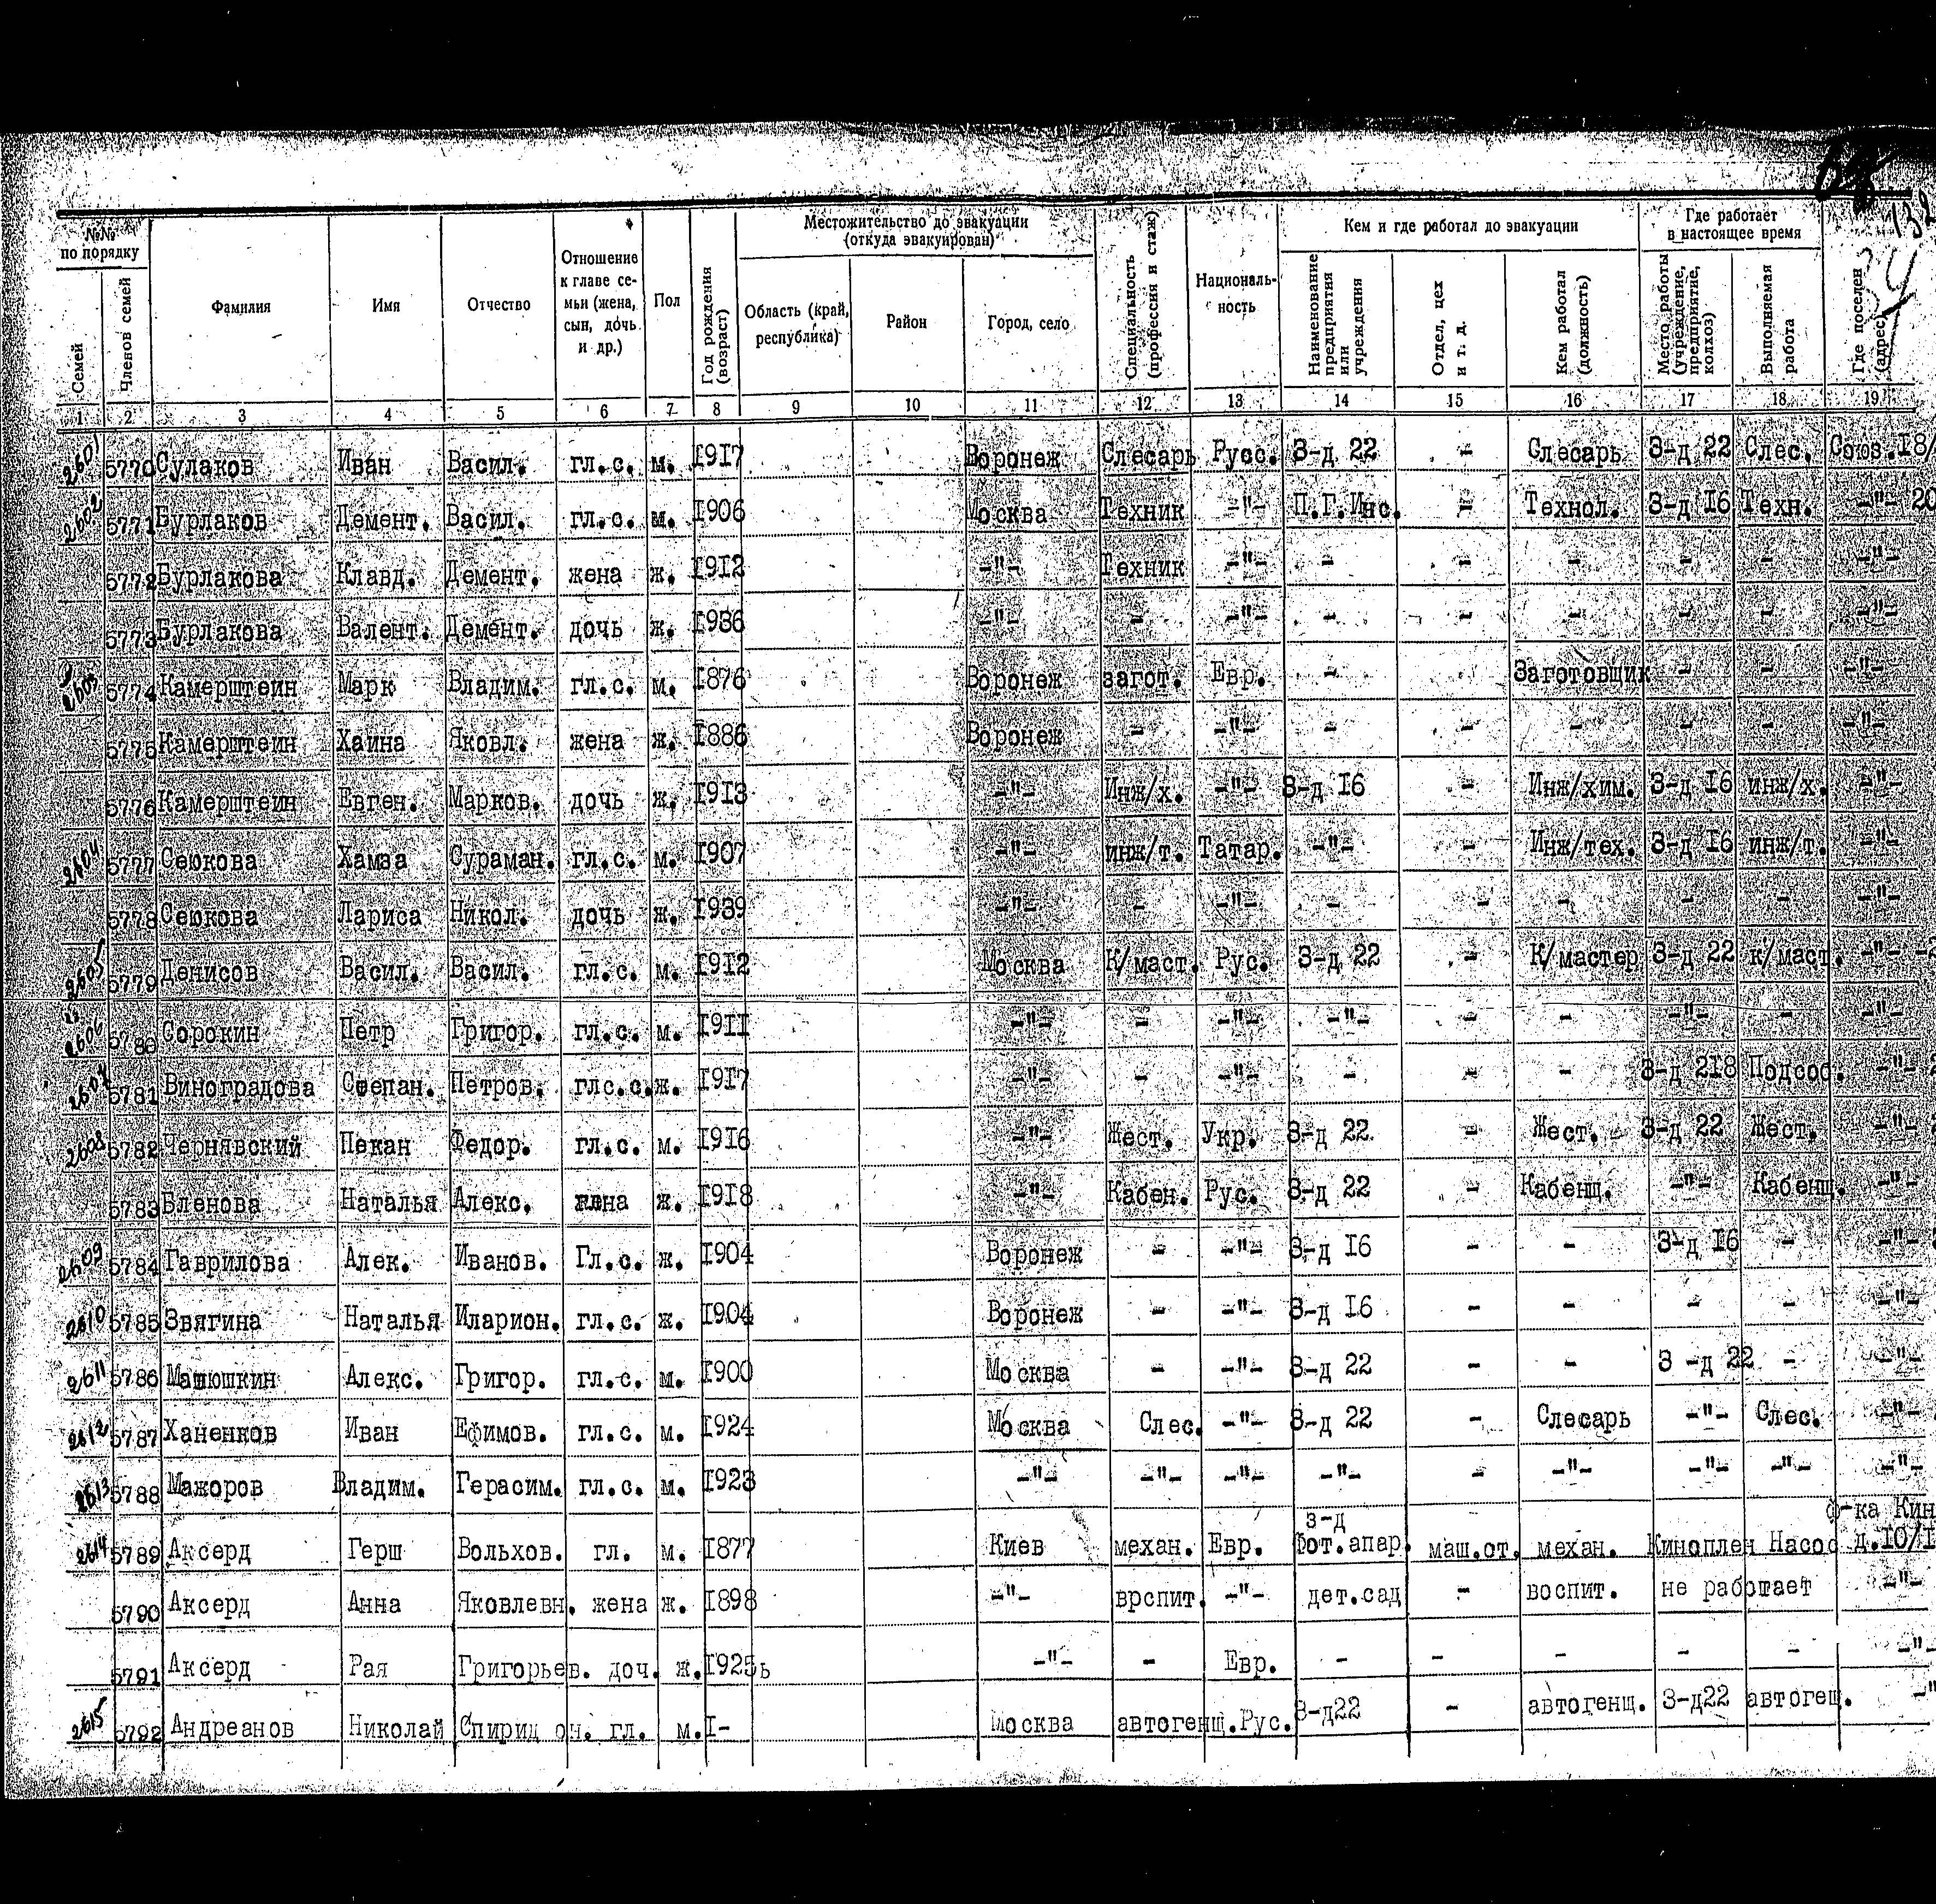 132
34
№№ по порядку | Фамилия | Имя | Отчество | Отношение к главе семьи (жена, сын, дочь и др.) | Пол | Год рождения (возраст) | Местожительство до эвакуации (откуда эвакуирован) | Специальность (профессия и стаж) | Националь-ность | Кем и где работал до эвакуации | Где работает в настоящее время | Где поселен (адрес)
Семей | Членов семей | Область (край, республика) | Район | Город, село | Наименование предприятия или учреждения | Отдел, цех и т. д. | Кем работал (должность) | Место работы (учреждение, предприятие, колхоз) | Выполняемая работа
1 2 3 4 5 6 7 8 9 10 11 12 13 14 15 16 17 18 19
2601 5770 Сулаков Иван Васил. гл.с. м. 1917 Воронеж Слесарь Русс. З-д 22 - Слесарь З-д 22 Слес. Союз.18/
2602 5771 Бурлаков Демент. Васил. гл.с. м. 1906 Москва Техник -"- П.Г.Инс. - Технол. З-д 16 Техн. -"- 20
5772 Бурлакова Клавд. Демент. жена ж. 1912 -"- Техник -"- - - - - - -"-
5773 Бурлакова Валент. Демент. дочь ж. 1936 -"- - -"- - - - - - -"-
2603 5774 Камерштеин Марк Владим. гл.с. м. 1876 Воронеж загот. Евр. - Заготовщик - - -"-
5775 Камерштеин Хаина Яковл. жена ж. 1886 Воронеж - -"- - - - - - -"-
5776 Камерштеин Евген. Марков. дочь ж. 1913 -"- Инж/х. -"- З-д 16 - Инж/хим. З-д 16 инж/х. -"-
2604 5777 Сеюкова Хамза Сураман. гл.с. м. 1907 -"- инж/т. Татар. -"- - Инж/тех. З-д 16 инж/т. -"-
5778 Сеюкова Лариса Никол. дочь ж. 1939 -"- - -"- - - - - - -"-
2605 5779 Денисов Васил. Васил. гл.с. м. 1912 Москва К/маст. Рус. З-д 22 - К/мастер З-д 22 к/маст. -"- -2
2606 5780 Сорокин Петр Григор. гл.с. м. 1911 -"- - -"- -"- - - -"- - -"-
2607 5781 Виноградова Сшепан. Петров. глс.с. ж. 1917 -"- - -"- - - - З-д 218 Подсоб. -"-
2608 5782 Чернявский Пекан Федор. гл.с. м. 1916 -"- Жест. Укр. З-д 22 - Жест. З-д 22 Жест. -"-
5783 Бленова Наталья Алекс. жена ж. 1918 -"- Кабен. Рус. З-д 22 - Кабенщ. -"- Кабенщ. -"-
2609 5784 Гаврилова Алек. Иванов. Гл.с. ж. 1904 Воронеж - -"- З-д 16 - - З-д 16 - -"-
2610 5785 Звягина Наталья Иларион. гл.с. ж. 1904 Воронеж - -"- З-д 16 - - - - -"-
2611 5786 Машюшкин Алекс. Григор. гл.с. м. 1900 Москва - -"- З-д 22 - - З -д 22 - -"-
2612 5787 Ханенков Иван Ефимов. гл.с. м. 1924 Москва Слес. -"- З-д 22 - Слесарь -"- Слес. -"-
2613 5788 Мажоров Владим. Герасим. гл.с. м. 1923 -"- -"- -"- -"- - -"- -"- -"- -"-
2614 5789 Аксерд Герш Вольхов. гл. м. 1877 Киев механ. Евр. з-д Фот.апар. маш.от. механ. Киноплен Насос ф-ка Кин д.10/1
5790 Аксерд Анна Яковлевн. жена ж. 1898 -"- врспит. -"- дет.сад - воспит. не работает -"-
5791 Аксерд Рая Григорьев. доч. ж. 1925ь -"- - Евр. - - - - - -"-
2615 5792 Андреанов Николай Спирид он. гл. м. 1- Москва автогенщ. Рус. З-д22 - автогенщ. З-д22 автогещ. -"